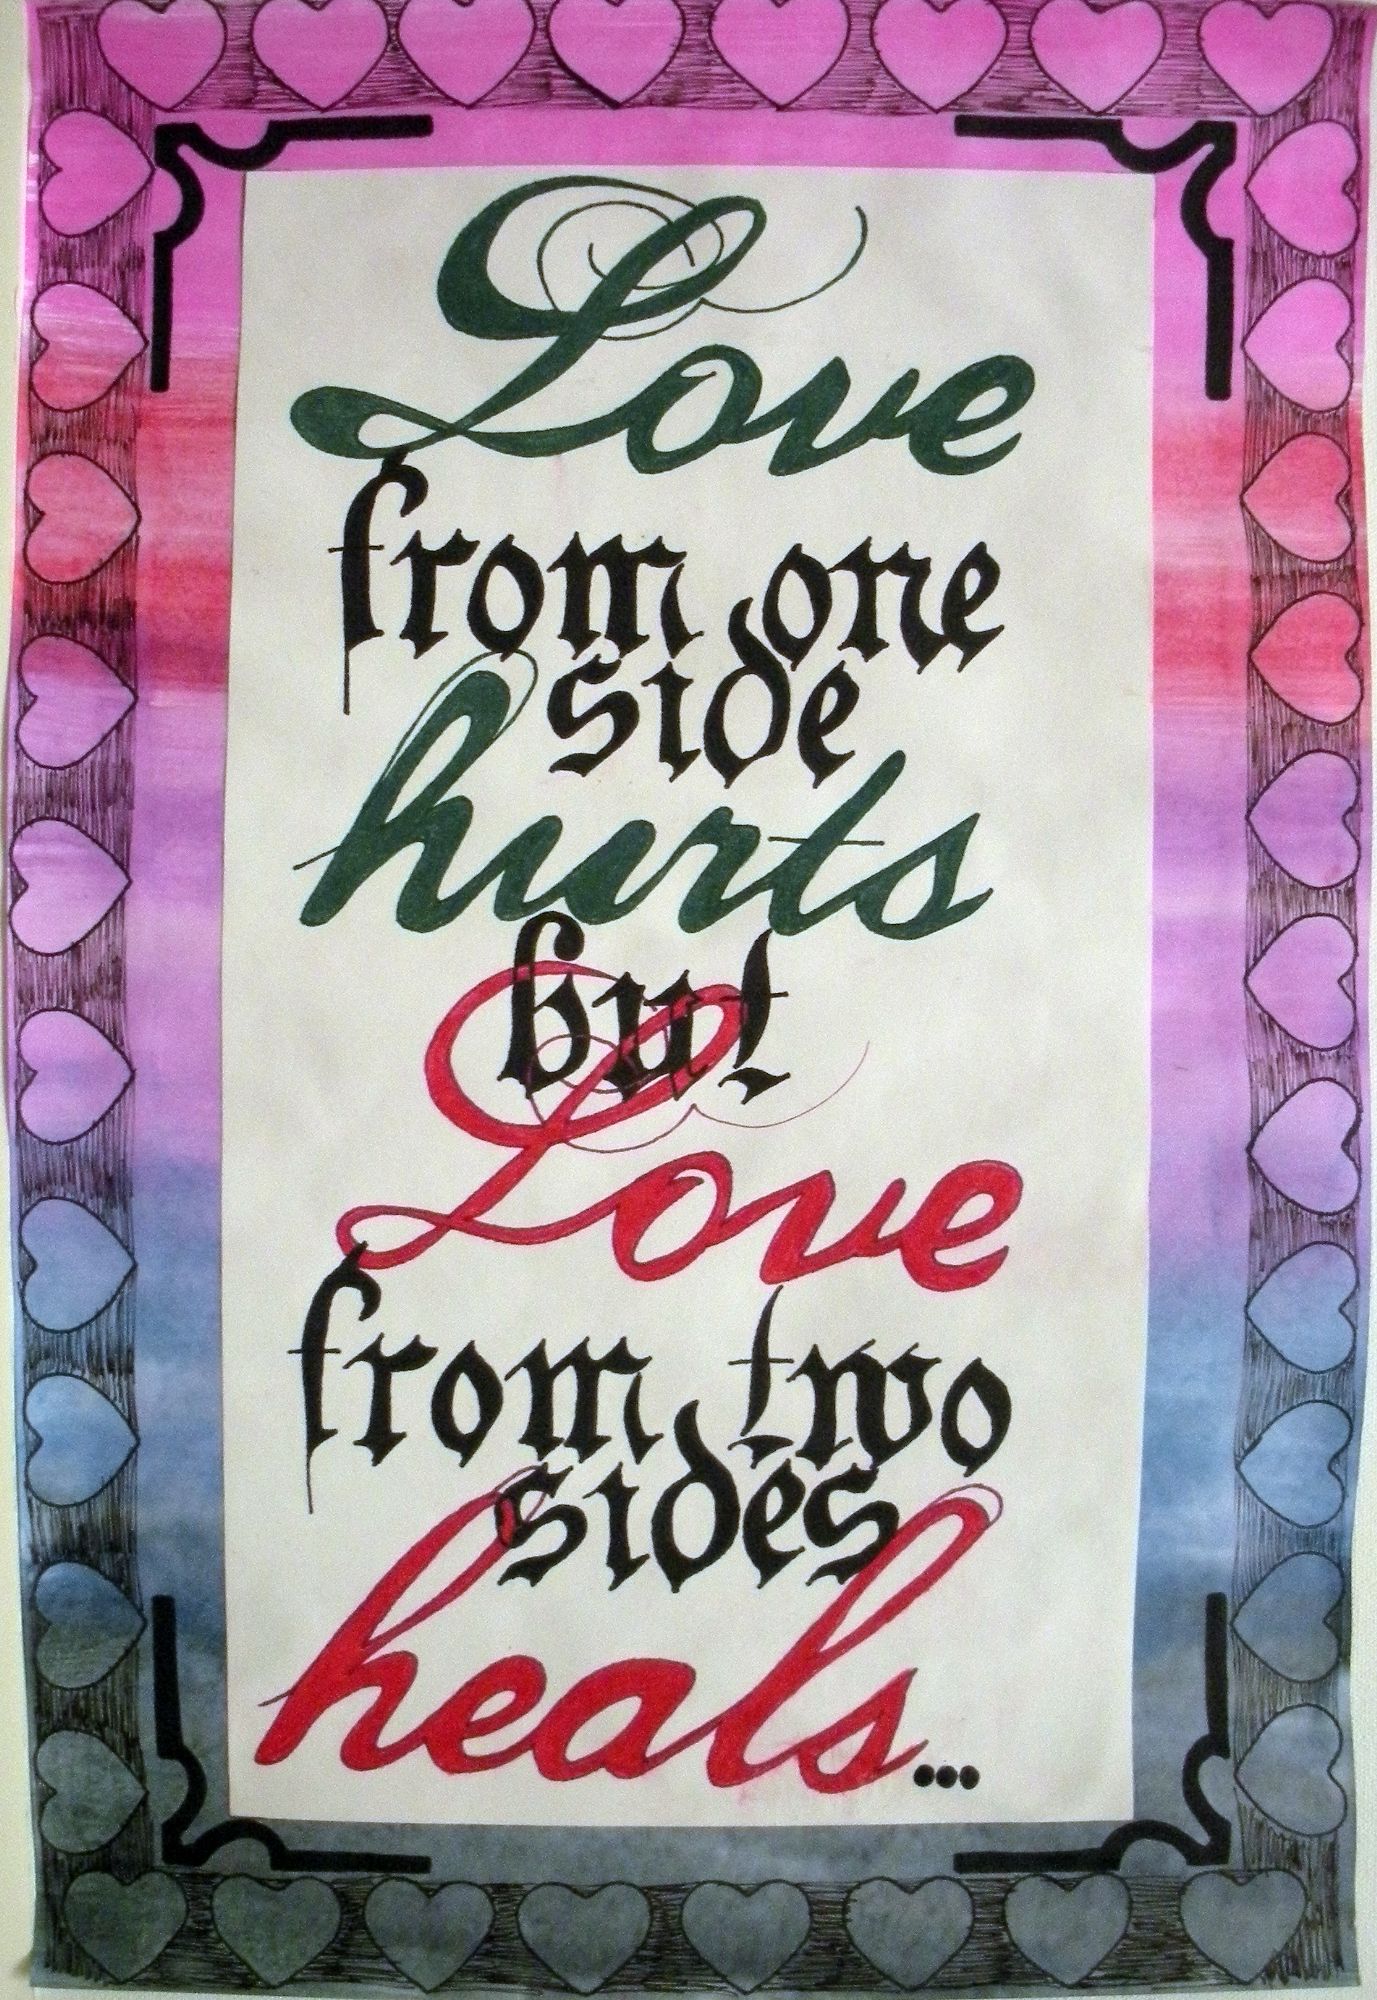 Love
from one
side
hurts
but
Love
from two
sides
heals...